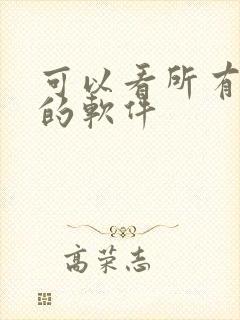 可以看所有
的軟件
高荣志